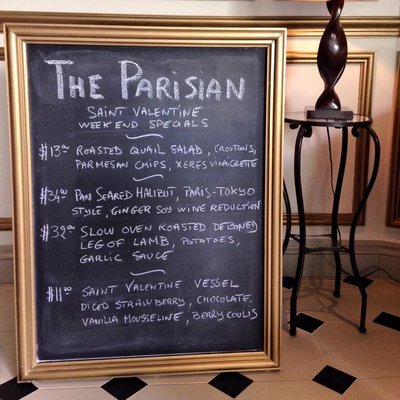 THE PARISIAN
SAINT VALENTINE
WEEKEND SPECIALS
$13.00 ROASTED QUAIL SALAD, CROUTONS,
PARMESAN CHIPS, XERES VINAIGRETTE
$34.00 PAN SEARED HALIBUT, PARIS-TOKYO
STYLE, GINGER SOY WINE REDUCTION
$32.00 SLOW OVEN ROASTED DEBONED
LEG OF LAMB, POTATOES,
GARLIC SAUCE
$11.00 SAINT VALENTINE VESSEL
DICED STRAWBERRY, CHOCOLATE,
VANILLA MOUSSELINE, BERRY COULIS